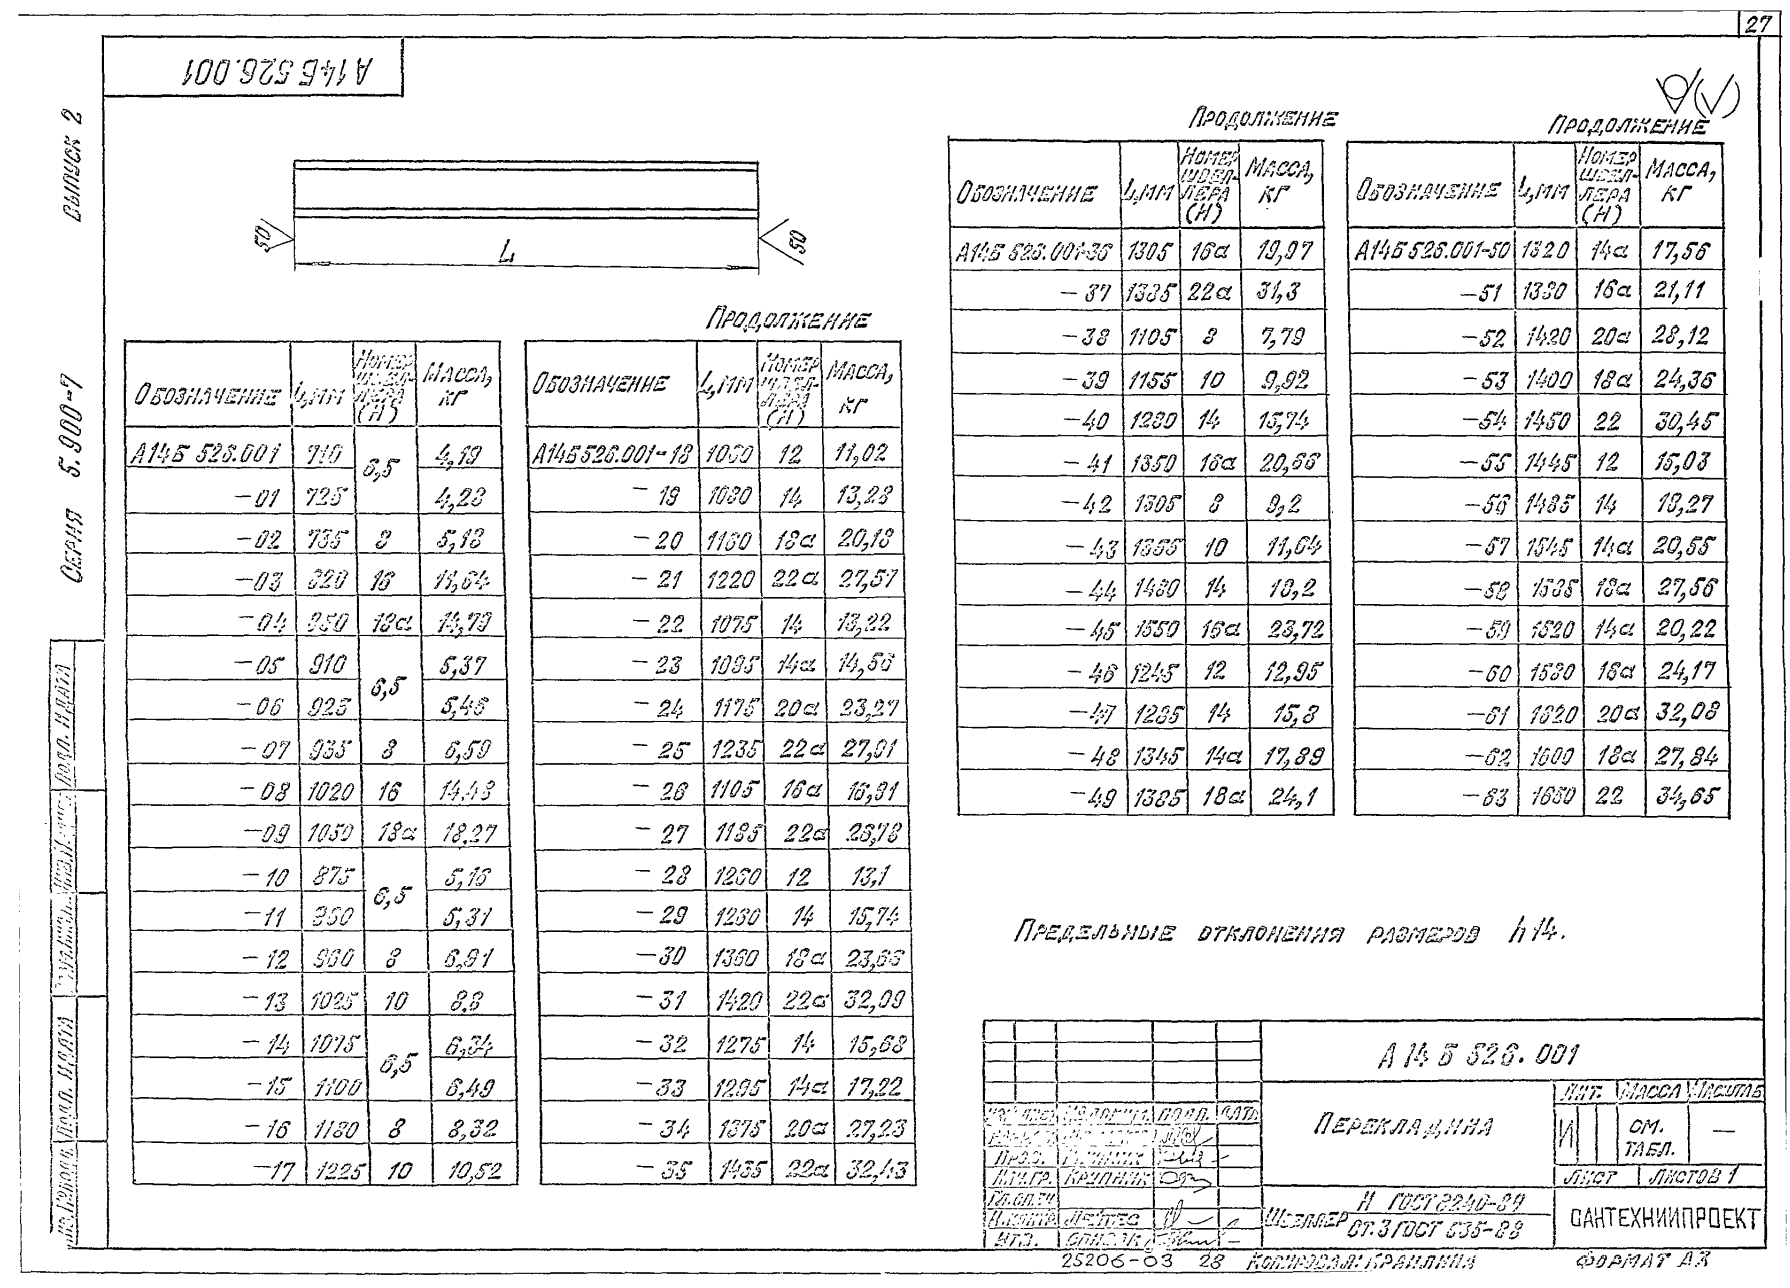 27
А14Б 526.001
Выпуск 2
Серия 5.900-7
50
L
50
Обозначение | L,мм | Номер швеллера (Н) | Масса, кг
А14Б 526.001 | 710 | 6,5 | 4,19
-01 | 725 | 4,28
-02 | 735 | 8 | 5,18
-03 | 820 | 16 | 11,64
-04 | 850 | 18а | 14,79
-05 | 910 | 6,5 | 5,37
-06 | 925 | 5,46
-07 | 935 | 8 | 6,59
-08 | 1020 | 16 | 14,48
-09 | 1050 | 18а | 18,27
-10 | 875 | 6,5 | 5,16
-11 | 5,31
-12 | 8
-13 | 1025 | 10 | 8,8
-14 | 1075 | 6,5 | 6,34
-15 | 1100 | 6,49
-16 | 1180 | 8 | 8,32
-17 | 1225 | 10 | 10,52
Продолжение
Обозначение | L,мм | Номер швеллера (Н) | Масса, кг
А14Б 526.001-18 | 1060 | 12 | 11,02
-19 | 1080 | 14 | 13,28
-20 | 1160 | 18а | 20,18
-21 | 1220 | 22а | 27,57
-22 | 1075 | 14 | 13,22
-23 | 1095 | 14а | 14,56
-24 | 1175 | 20а | 23,27
-25 | 1235 | 22а | 27,91
-26 | 1105 | 16а | 16,91
-27 | 1185 | 22а | 26,78
-28 | 1260 | 12 | 13,1
-29 | 1280 | 14 | 15,74
-30 | 1360 | 18а | 23,66
-31 | 1420 | 22а | 32,09
-32 | 1275 | 14 | 15,68
-33 | 1295 | 14а | 17,22
-34 | 1375 | 20а | 27,23
-35 | 1435 | 22а | 32,43
Продолжение
Обозначение | L,мм | Номер швеллера (Н) | Масса, кг
А14Б 526.001-36 | 1305 | 16а | 19,97
-37 | 1385 | 22а | 31,3
-38 | 1105 | 8 | 7,79
-39 | 1155 | 10 | 9,92
-40 | 1280 | 14 | 15,74
-41 | 1350 | 16а | 20,66
-42 | 1305 | 8 | 9,2
-43 | 1355 | 10 | 11,64
-44 | 1480 | 14 | 18,2
-45 | 1550 | 16а | 23,72
-46 | 1245 | 12 | 12,95
-47 | 1285 | 14 | 15,8
-48 | 1345 | 14а | 17,89
-49 | 1385 | 18а | 24,1
Продолжение
Обозначение | L,мм | Номер швеллера (Н) | Масса, кг
А14Б 526.001-50 | 1320 | 14а | 17,56
-51 | 1380 | 16а | 21,11
-52 | 1420 | 20а | 28,12
-53 | 1400 | 18а | 24,36
-54 | 1450 | 22 | 30,45
-55 | 1445 | 12 | 15,03
-56 | 1485 | 14 | 18,27
-57 | 1545 | 14а | 20,55
-58 | 1585 | 18а | 27,56
-59 | 1520 | 14а | 20,22
-60 | 1580 | 16а | 24,17
-61 | 1620 | 20а | 32,08
-62 | 1600 | 18а | 27,84
-63 | 1650 | 22 | 34,65
Предельные отклонения размеров h14.
Подп. и дата
Подп. и дата
А14Б 526.001
Перекладина
Лит. | Масса | Масштаб
И | см. табл. | —
Лист | Листов 1
Пров.
Нач.гр. Крупник
Н.контр.
Утв.
Швеллер Н ГОСТ 8240-89
Ст.3 ГОСТ 535-88
САНТЕХНИИПРОЕКТ
25206-03 28
Копировал:
Формат А3